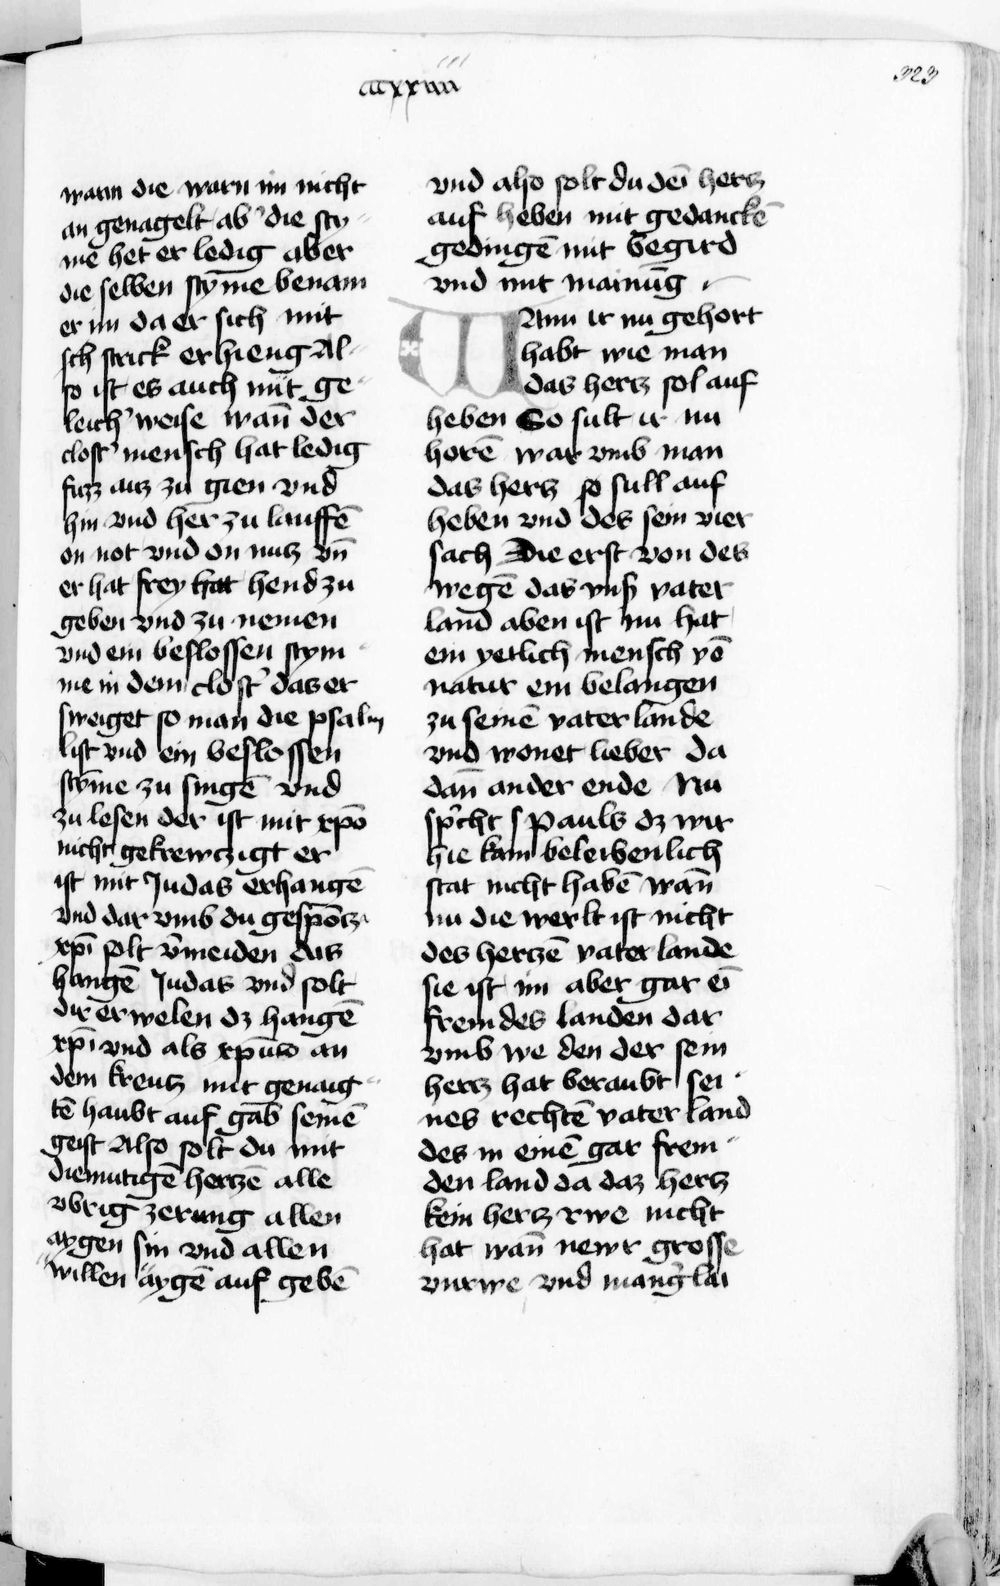 ccccxxiiii
323
wann die warn im nicht
an genagelt ab' die sty
me het er ledig aber
die selben stȳme benam
er im da er sich mit
sch strick erhieng Al
so ist es auch mit ge
leich' weise wan̄ der
clost' mensch hat ledig
fuzz auz zu gien vnd
hin vnd her zu lauffē
on not vnd on nutz vn̄
er hat frey hat hend zu
geben vnd zu nemen
vnd ein beslossen stym
me in dem clost' das er
sweiget so man die psalm
list vnd ein beslossen
stȳme zu singē vnd
zu lesen der ist mit xp̄o
nicht gekrewczigt er
ist mit Judas erhangē
vnd dar vmb du gespōtz
xp̄i solt v̄meiden das
hangē Judas vnd solt
dir erwelen dz hangē
xp̄i vnd als xp̄us an
dem kreutz mit genaig
tē haubt auf gab seinē
geist Also solt du mit
diemutigē hertzē alle
vbrig zerung allen
aygen sin vnd allen
willen aygē auf gebē
vnd also solt du deī hertz
auf heben mit gedanckē
gedingē mit begird
vnd mit mainūg
Wann ir nu gehort
habt wie man
das hertz sol auf
heben So sult ir nu
horē war vmb man
das hertz so sull auf
heben vnd des sein vier
sach Die erst von des
wegē das vnß vater
land oben ist nu hat
ein yetlich mensch vō
natur ein belangen
zu seinē vater lande
vnd wonet lieber da
dan̄ ander ende Nu
sp̓cht s Pauls dz wir
hie kain beleibenlich
stat nicht habē wan̄
nu die werlt ist nicht
des hertzē vater lande
sie ist im aber gar eī
fremdes landen dar
vmb we den der sein
hertz hat beraubt sei
nes rechtē vater land
des in einē gar frem
den land da daz hertz
kein hertz rwe nicht
hat wan̄ newr grosse
vnrwe vnd mang'lai